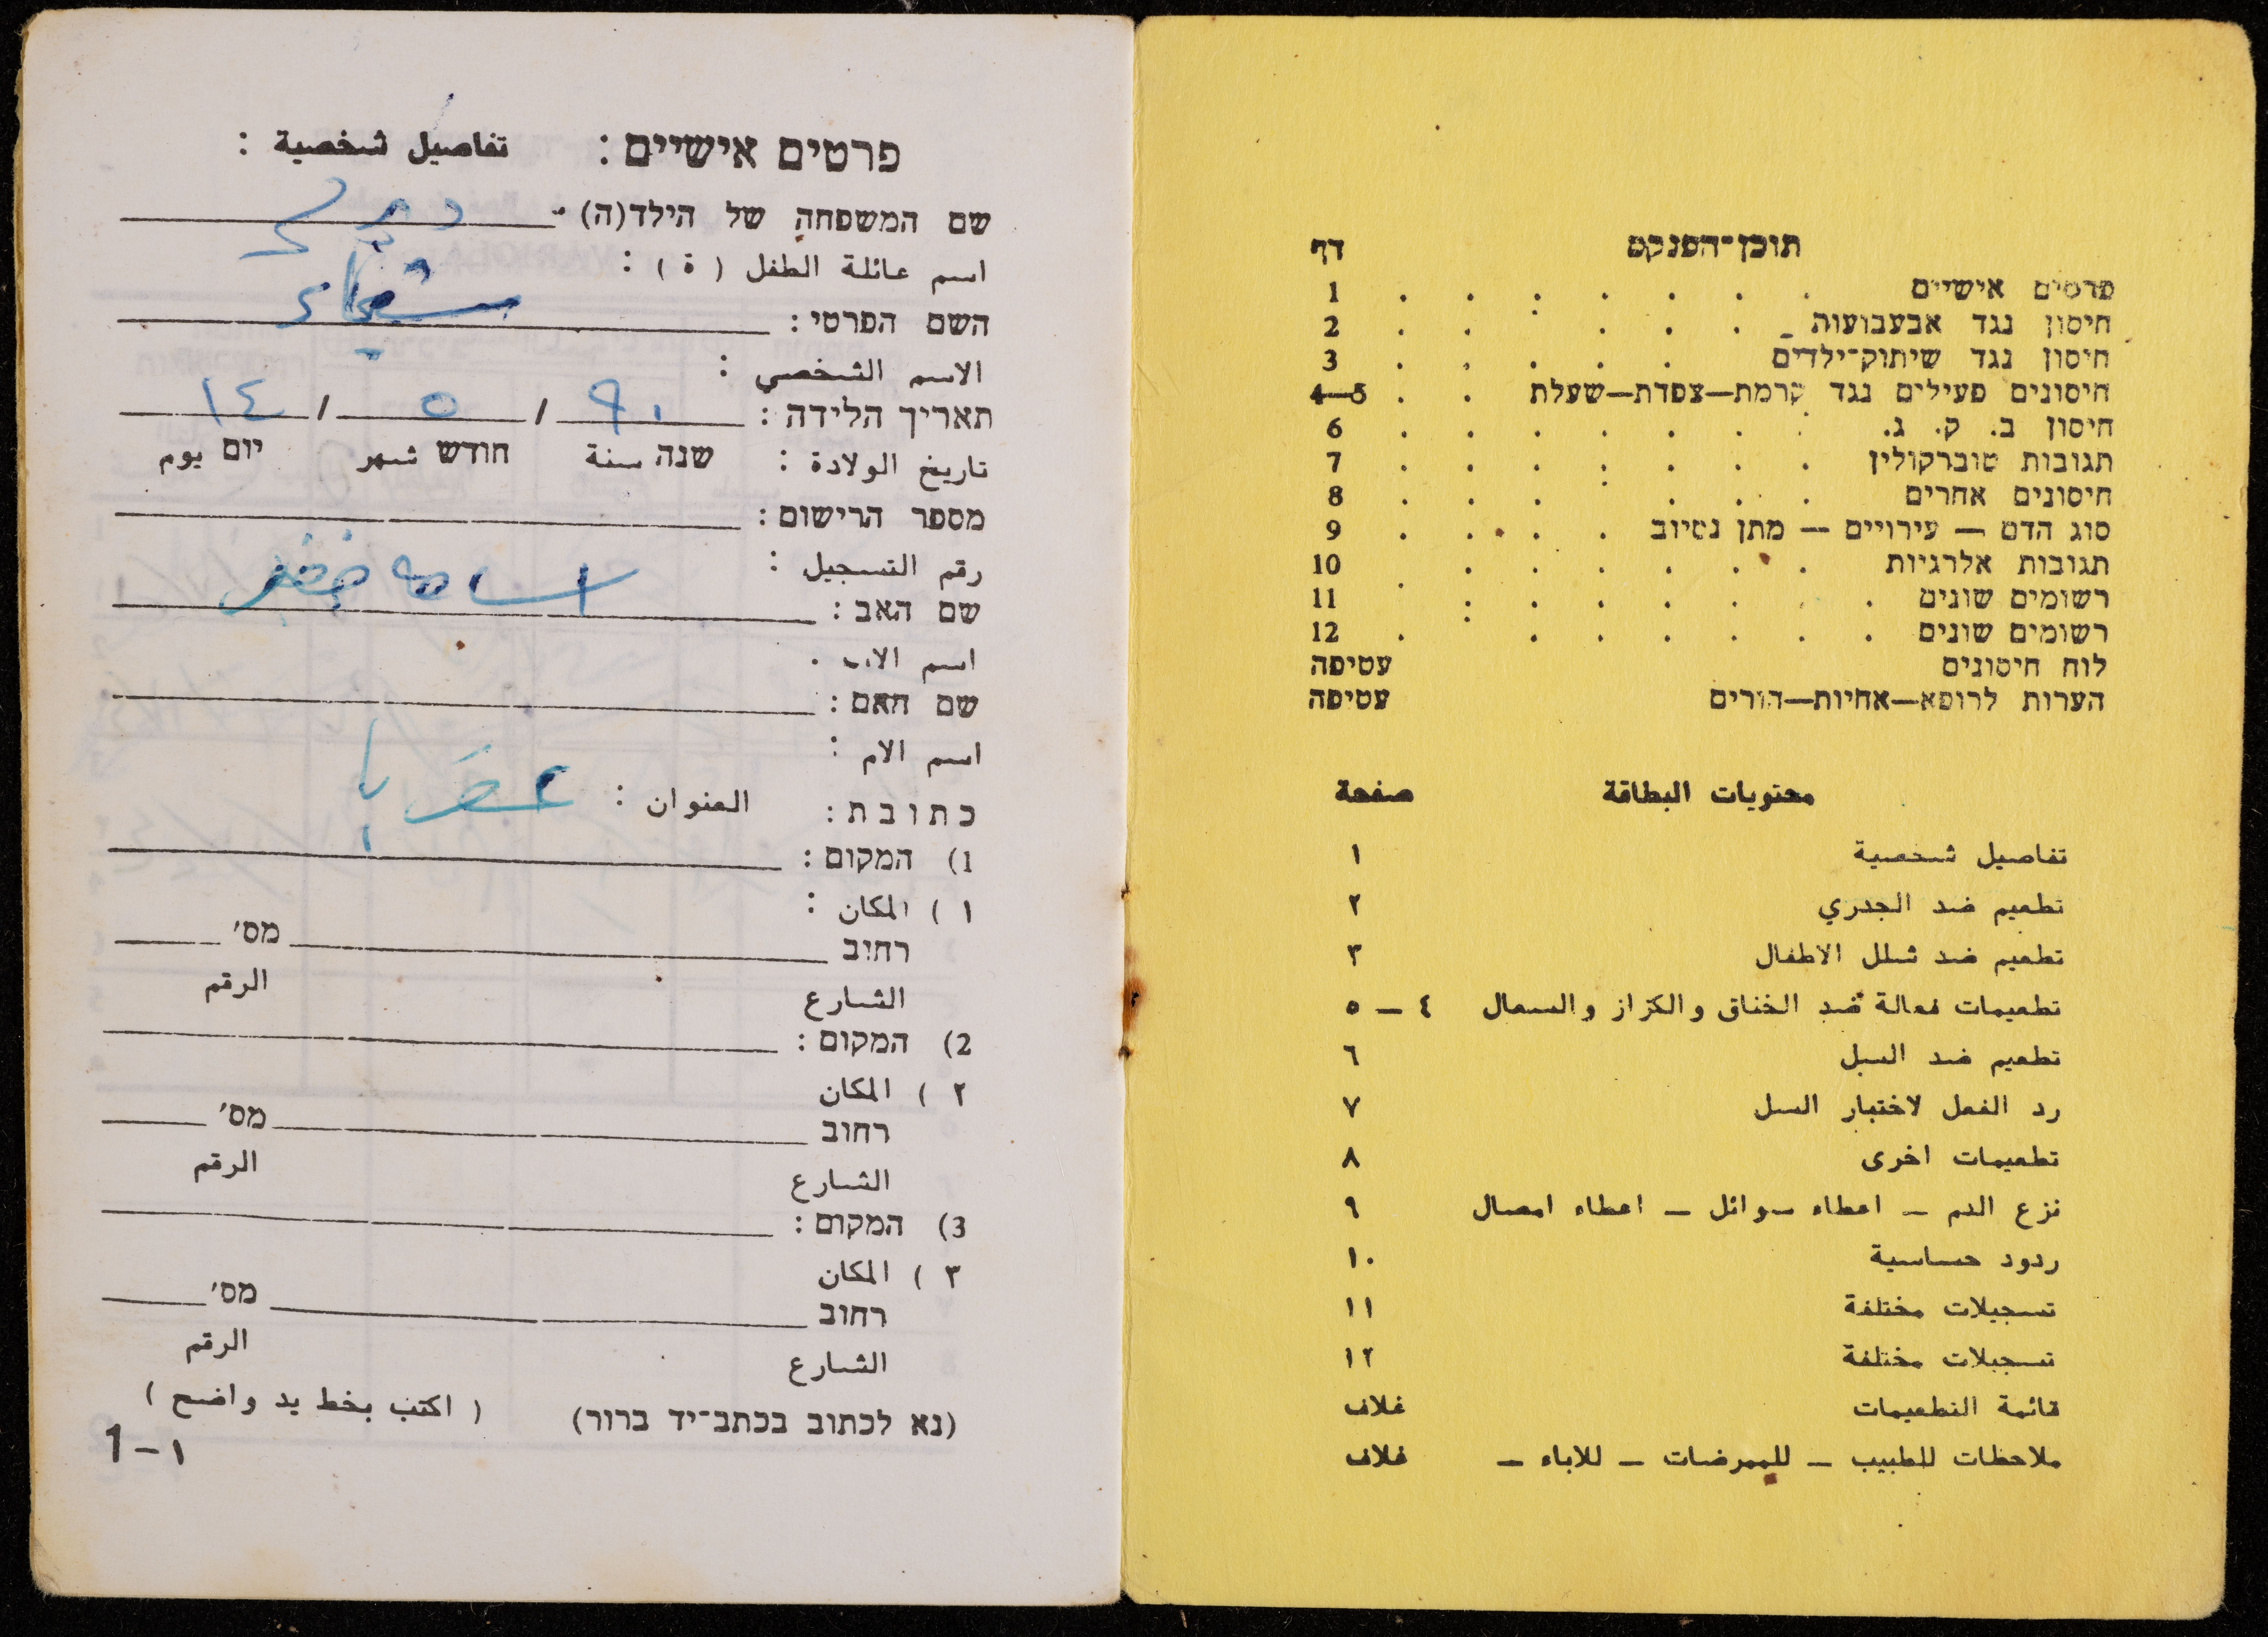 תוכן־הפנקס דף
פרטים אישיים . . . . . . . 1
חיסון נגד אבעבועות . . . . . 2
חיסון נגד שיתוק־ילדים . . . . . 3
חיסונים פעילים נגד קרמת—צפדת—שעלת . . 4—5
חיסון ב. ק. ג. . . . . . . . 6
תגובות טוברקולין . . . . . . . 7
חיסונים אחרים . . . . . . . 8
סוג הדם — עירויים — מתן נסיוב . . . . 9
תגובות אלרגיות . . . . . . 10
רשומים שונים . . . . . . . 11
רשומים שונים . . . . . . . 12
לוח חיסונים עטיפה
הערות לרופא—אחיות—הורים עטיפה
محتويات البطاقة صفحة
تفاصيل شخصية ١
تطعيم ضد الجدري ٢
تطعيم ضد شلل الاطفال ٣
تطعيمات فعالة ضد الخناق والكزاز والسعال ٤ — ٥
تطعيم ضد السل ٦
رد الفعل لاختبار السل ٧
تطعيمات اخرى ٨
نزع الدم — اعطاء سوائل — اعطاء امصال ٩
ردود حساسية ١٠
تسجيلات مختلفة ١١
تسجيلات مختلفة ١٢
قائمة التطعيمات غلاف
ملاحظات للطبيب — للممرضات — للاباء — غلاف
פרטים אישיים : تفاصيل شخصية :
שם המשפחה של הילד(ה)
اسم عائلة الطفل ( ة ) :
השם הפרטי :
الاسم الشخصي :
תאריך הלידה : ٩١ / ٥ / ١٤
تاريخ الولادة : שנה سنة חודש شهر יום يوم
מספר הרישום :
رقم التسجيل :
שם האב : اسامه خضر
اسم الاب .
שם האם :
اسم الام :
כתובת : العنوان :
1) המקום :
١ ) المكان :
רחוב מס׳
الشارع الرقم
2) המקום :
٢ ) المكان
רחוב מס׳
الشارع الرقم
3) המקום :
٣ ) المكان
רחוב מס׳
الشارع الرقم
(נא לכתוב בכתב־יד ברור) ( اكتب بخط يد واضح )
1–١